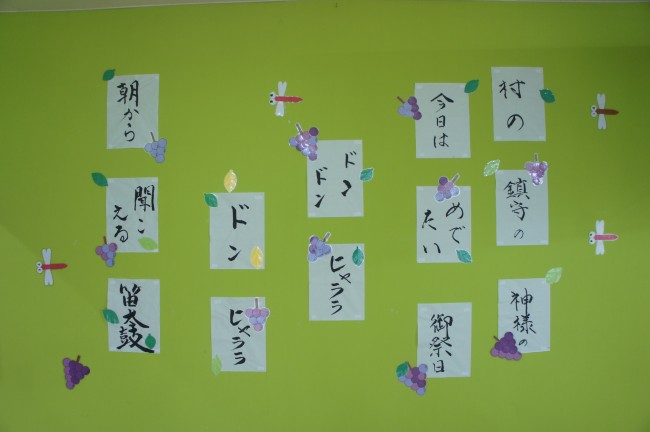 村の
鎮守の
神様の
今日は
めでたい
御祭日
ドンドン
ヒャララ
ドン
ヒャララ
朝から
聞こえる
笛太鼓